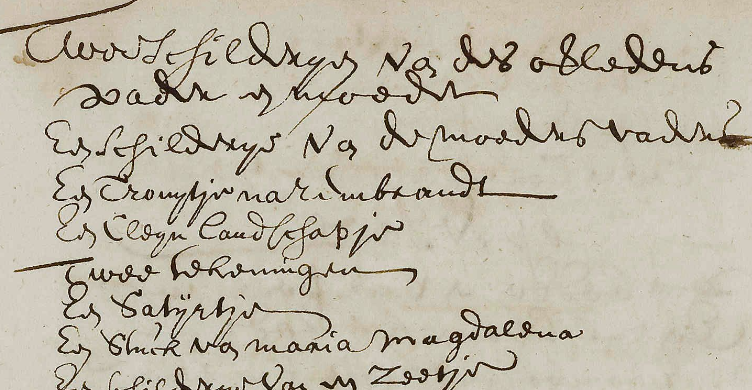 Twee Schilderyen van des overledens
vader en moeder
Een Schilderye van de moeders vader
Een Tronytje na rembrandt
Een Cleyn landschapje
Twee tekeningen
Een Satyrtje
Een Stuck van maria magdalena
Een Schilderye van een Zeetje